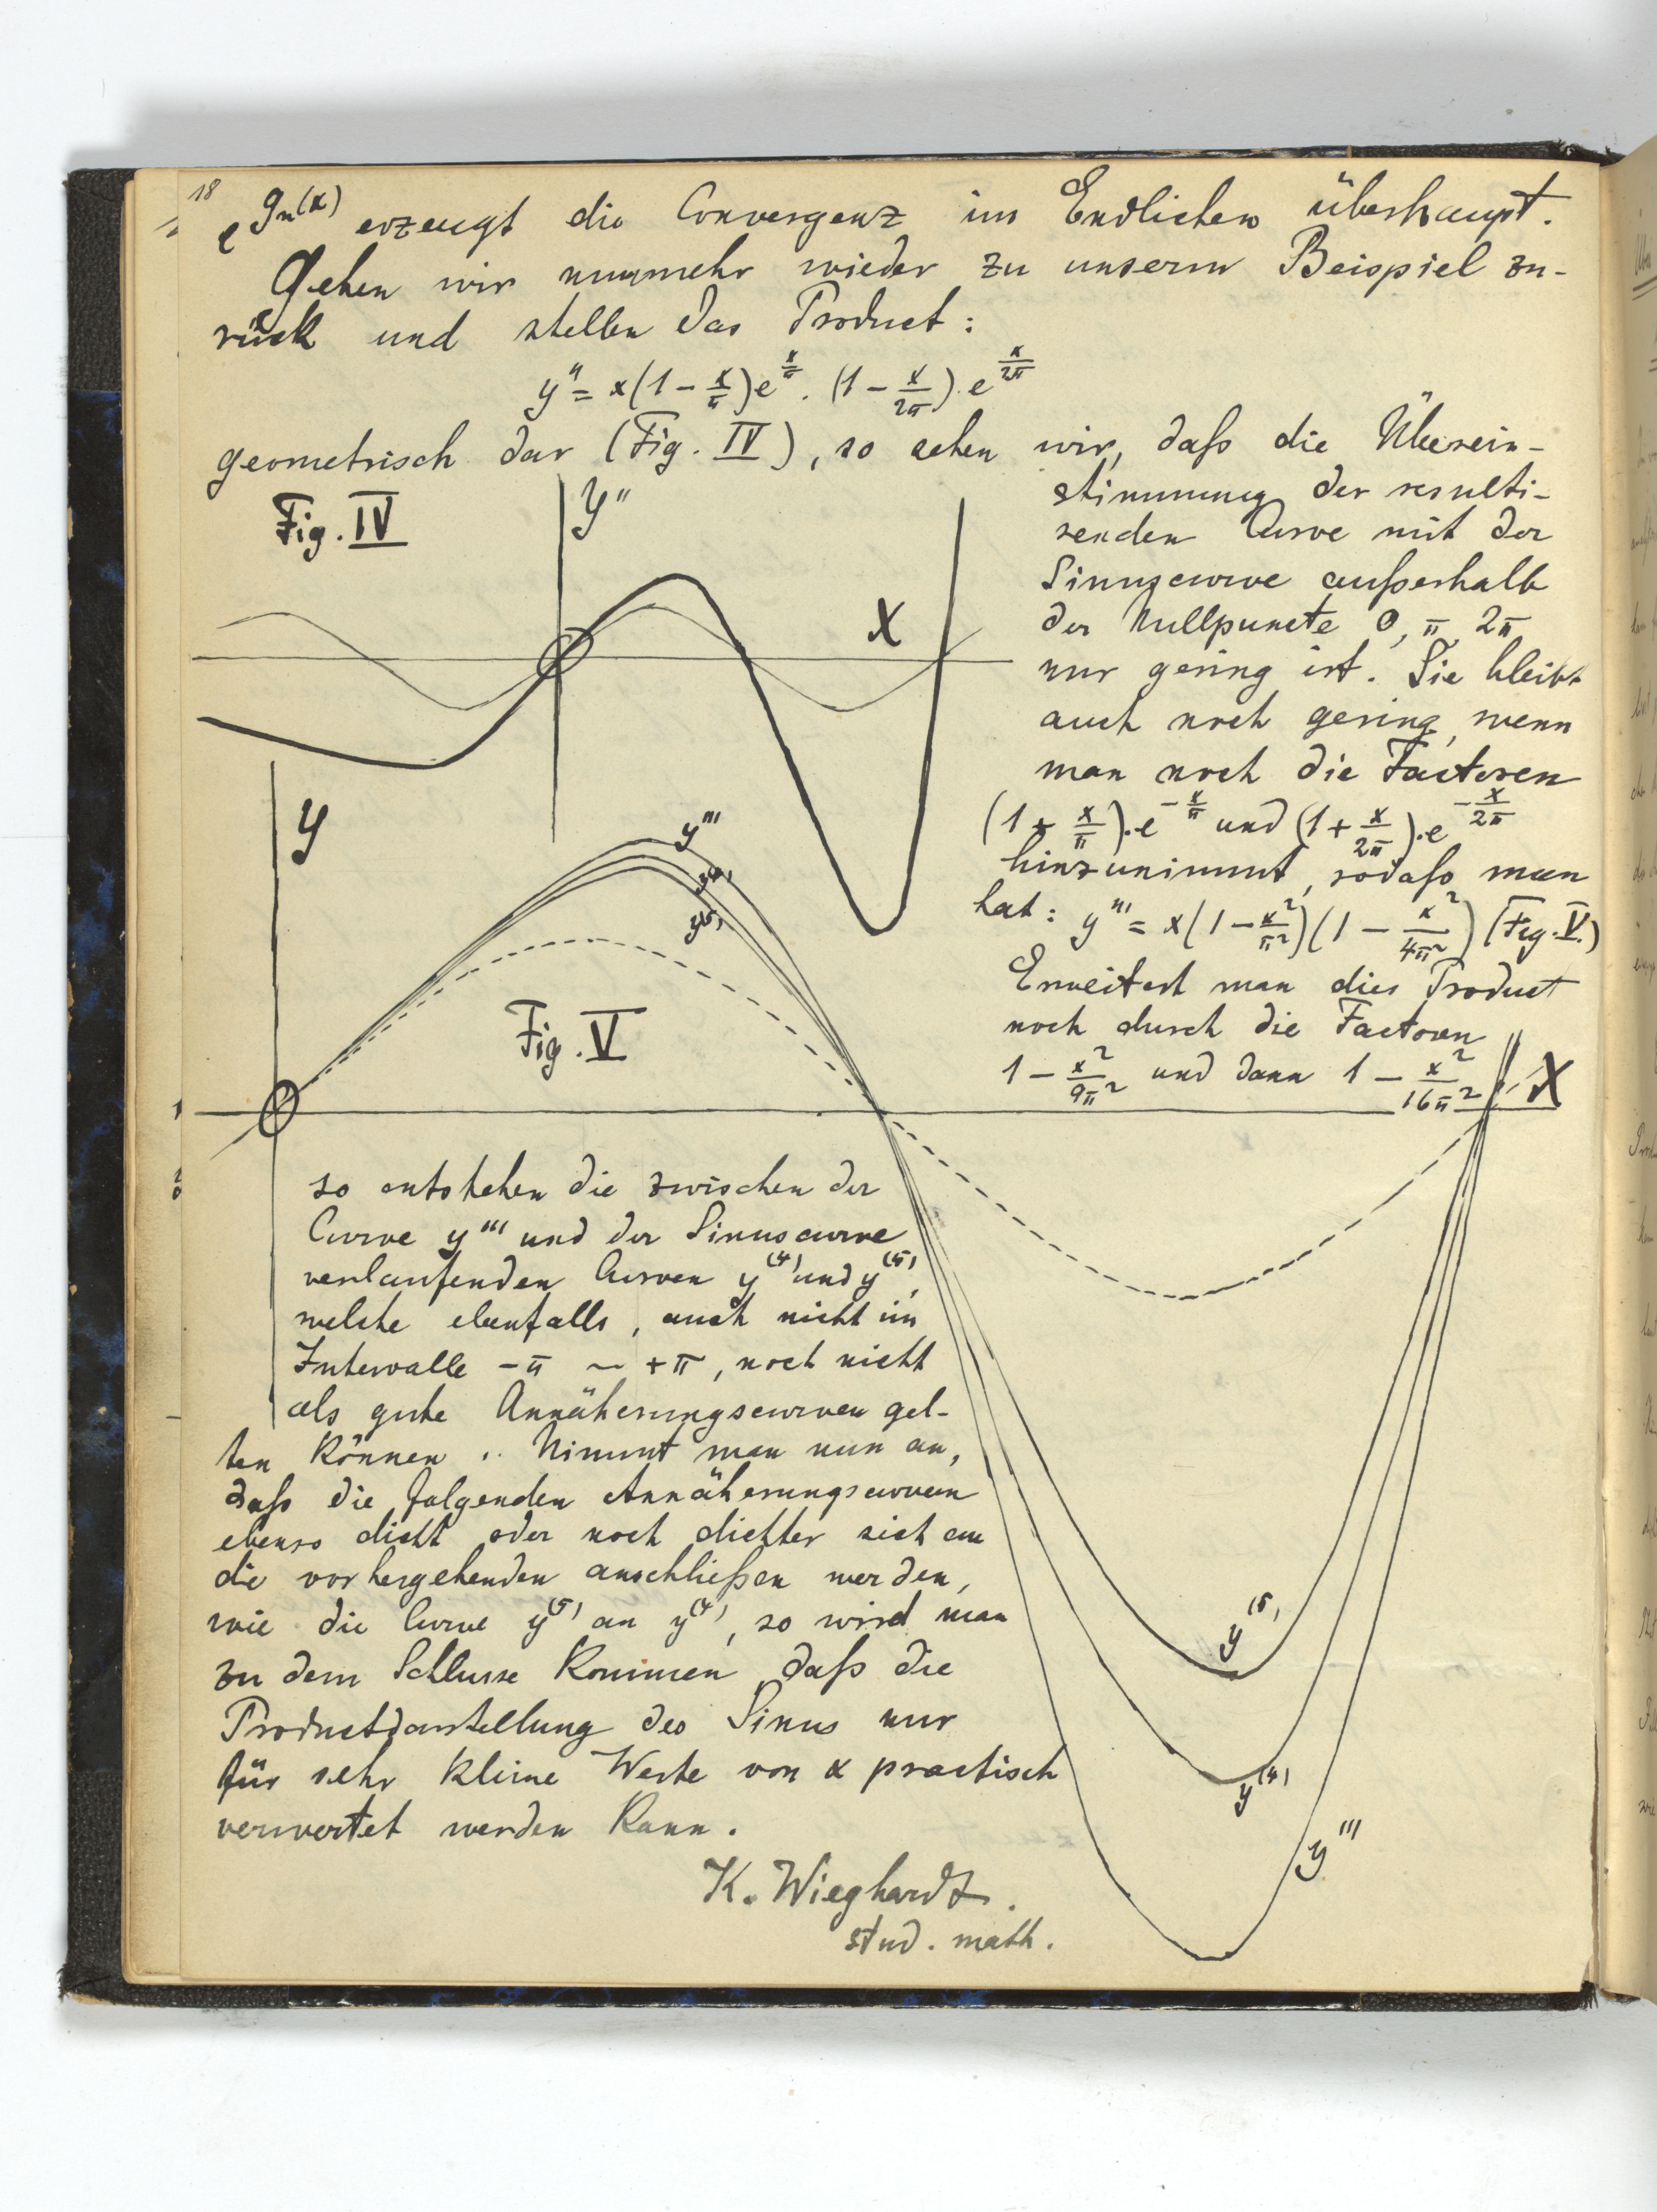 18
e^{g_n(x)} erzeugt die Convergenz im Endlichen überhaupt.
Gehen wir nunmehr wieder zu unserm Beispiel zu-
rück und stellen das Product:
y'' = x(1 - x/π)e^{x/π} . (1 - x/2π).e^{x/2π}
geometrisch dar (Fig. IV), so sehen wir, daß die Überein-
stimmung der resulti-
renden Curve mit der
Sinuscurve außerhalb
der Nullpuncte 0, π, 2π
nur gering ist. Sie bleibt
auch noch gering, wenn
man noch die Factoren
(1 + x/π).e^{-x/π} und (1 + x/2π).e^{-x/2π}
hinzunimmt, sodaß man
hat: y''' = x(1 - x²/π²)(1 - x²/4π²) (Fig. V.)
Erweitert man dies Product
noch durch die Factoren
1 - x²/9π² und dann 1 - x²/16π²,
Fig. IV
y''
X
y
y'''
y^{(4)}
y^{(5)}
Fig. V
X
so entstehen die zwischen der
Curve y''' und der Sinuscurve
verlaufenden Curven y^{(4)} und y^{(5)},
welche ebenfalls, auch nicht im
Intervalle -π ~ +π, noch nicht
als gute Annäherungscurven gel-
ten können. Nimmt man nun an,
daß die folgenden Annäherungscurven
ebenso dicht oder noch dichter sich an
die vorhergehenden anschließen werden,
wie die Curve y^{(5)} an y^{(4)}, so wird man
zu dem Schlusse kommen, daß die
Productdarstellung des Sinus nur
für sehr kleine Werte von x practisch
verwertet werden kann.
y^{(5)}
y^{(4)}
y'''
K. Wieghardt.
stud. math.